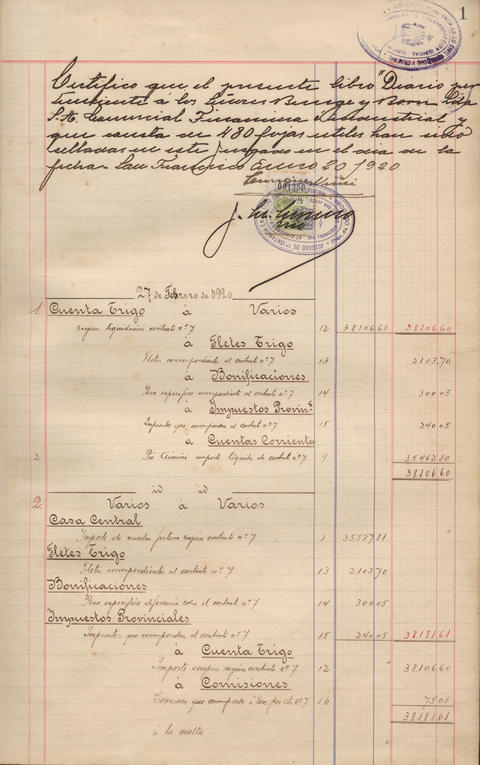 1
Certifico que el presente libro "Diario per
teneciente a los Señores Bunge y Born Ltda
S.A. Comercial Financiera e Industrial y
que consta de 480 fojas utiles han sido
selladas en este juzgado en el dia de la
fecha. San Francisco Enero 20/920
27 de Febrero de 1920
1 Cuenta Trigo á Varios
segun liquidación contrato nº 7 12 38106.60 38106.60
á Fletes Trigo
Flete correspondiente al contrato nº 7 13 2103.70
á Bonificaciones
Peso especifico correspondiente al contrato nº 7 14 300.05
á Impuestos Provinc.
Impuestos que corresponden al contrato nº 7 15 240.05
á Cuentas Corrientes
2 importe liquido de contrato nº 7 9 35462.80
38106.60
id id
2 Varios á Varios
Casa Central
Importe de nuestra factura según contrato nº 7 1 35537.81
Fletes Trigo
Fletes correspondientes al contrato nº 7 13 2103.70
Bonificaciones
Peso especifico diferencia sobre el contrato nº 7 14 300.05
Impuestos Provinciales
Impuestos que corresponden al contrato nº 7 15 240.05 38181.61
á Cuenta Trigo
Importe compra según contrato nº 7 12 38106.60
á Comisiones
Comisión que corresponde nº 7 16 75.01
38181.61
á la vuelta